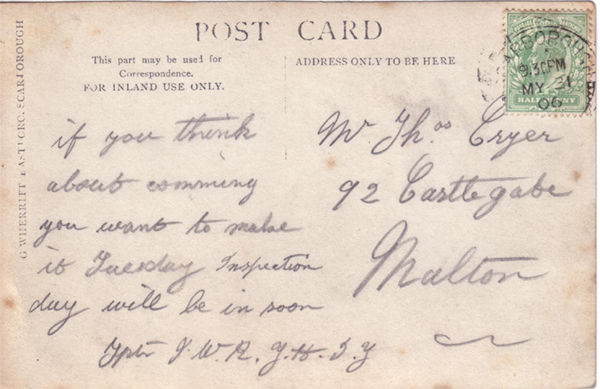 POST CARD
This part may be used for
Correspondence.
FOR INLAND USE ONLY.
ADDRESS ONLY TO BE HERE
if you think
about comming
you want to make
it Tuesday Inspection
day will be in soon
Mr. Thos Cryer
92 Castlegate
Malton
SCARBOROUGH
9.30PM
MY 21
06
HALFPENNY
SCARBOROUGH